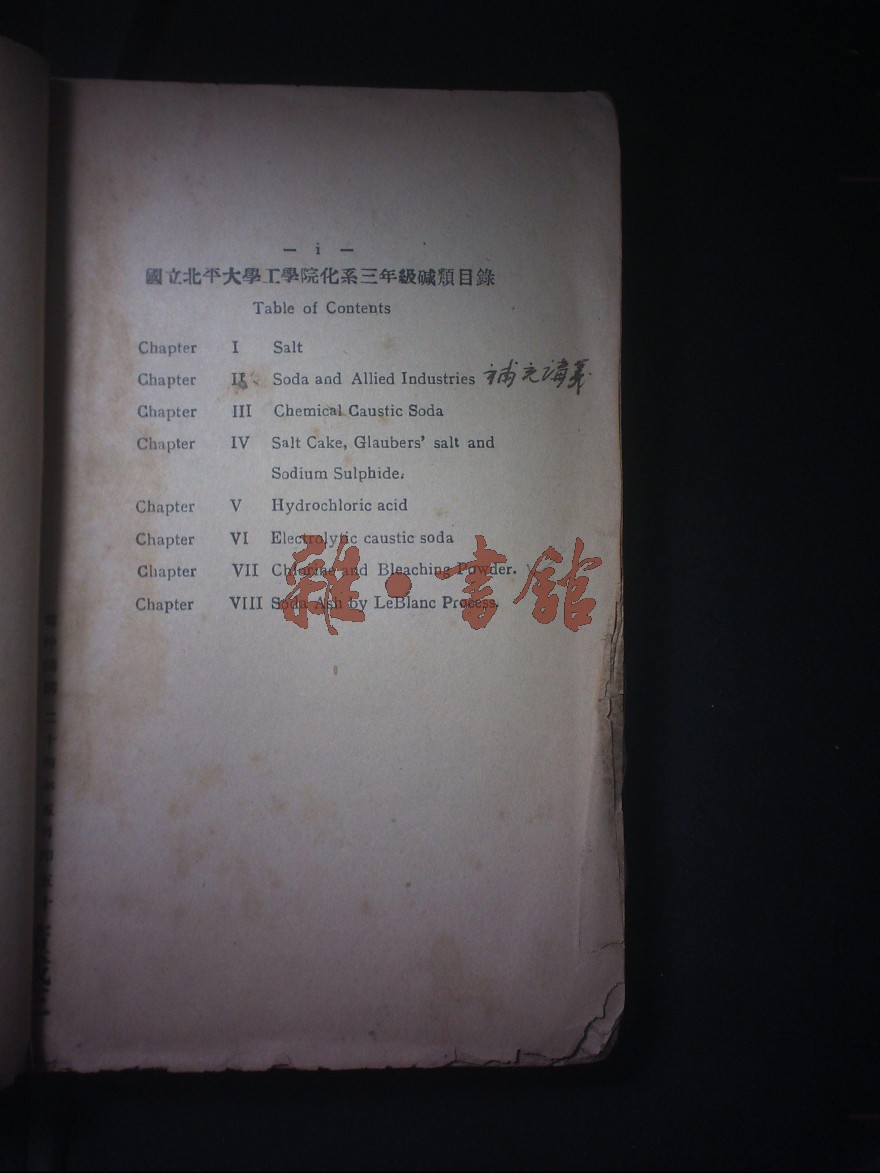 — i —
國立北平大學工學院化系三年級碱類目錄
Table of Contents
Chapter I Salt
Chapter II Soda and Allied Industries 補充講義
Chapter III Chemical Caustic Soda
Chapter IV Salt Cake, Glaubers' salt and
Sodium Sulphide.
Chapter V Hydrochloric acid
Chapter VI Electrolytic caustic soda
Chapter VII Chlorine and Bleaching Powder.
Chapter VIII Soda Ash by LeBlanc Process.
雜·書館